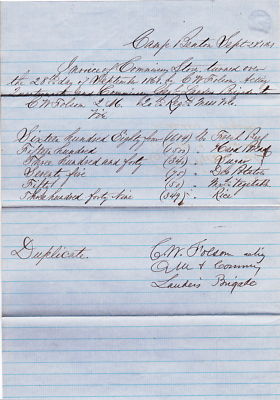 Camp Benton Sept 28th 1861
Invoice of Commissary Stores turned over
the 28th day of September 1861 by C W Folsom Acting
Quartermaster and Commissary Brigade to
C W Folsom Q.M. 20th Regt Mass Vols
Viz
Sixteen hundred Eighty four (1684) lbs Fresh Beef
Fifteen hundred (1500) " Hard Bread
Three hundred and forty (340) " Sugar
Seventy five (75) " Potatoes
Fifty (50) " Vegetables
Three hundred forty nine (349) " Rice
Duplicate.
C. W. Folsom acting
Q.M. & Commy
Landers Brigade